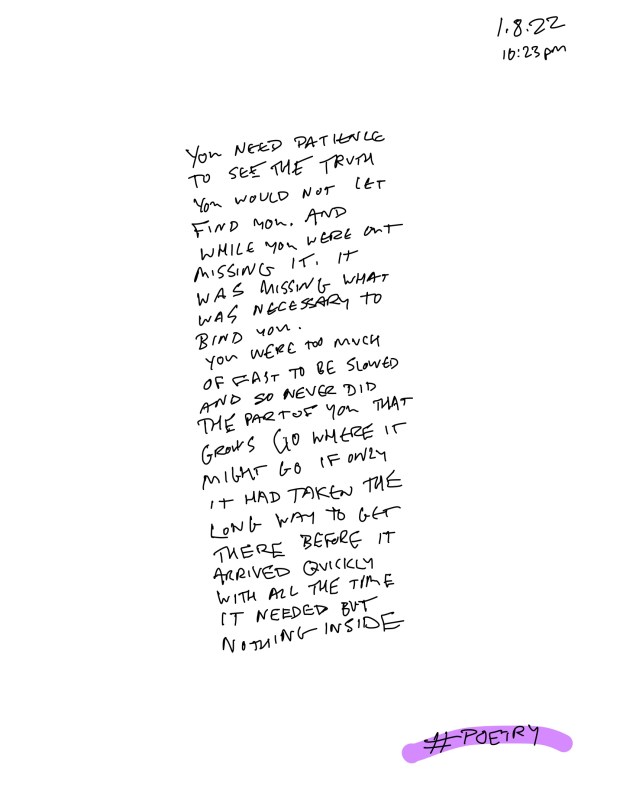 1.8.22
10:23pm
YOU NEED PATIENCE
TO SEE THE TRUTH
YOU WOULD NOT LET
FIND YOU. AND
WHILE YOU WERE OUT
MISSING IT. IT
WAS MISSING WHAT
WAS NECESSARY TO
BIND YOU.
YOU WERE TOO MUCH
OF FAST TO BE SLOWED
AND SO NEVER DID
THE PART OF YOU THAT
GROWS GO WHERE IT
MIGHT GO IF ONLY
IT HAD TAKEN THE
LONG WAY TO GET
THERE BEFORE IT
ARRIVED QUICKLY
WITH ALL THE TIME
IT NEEDED BUT
NOTHING INSIDE
#POETRY